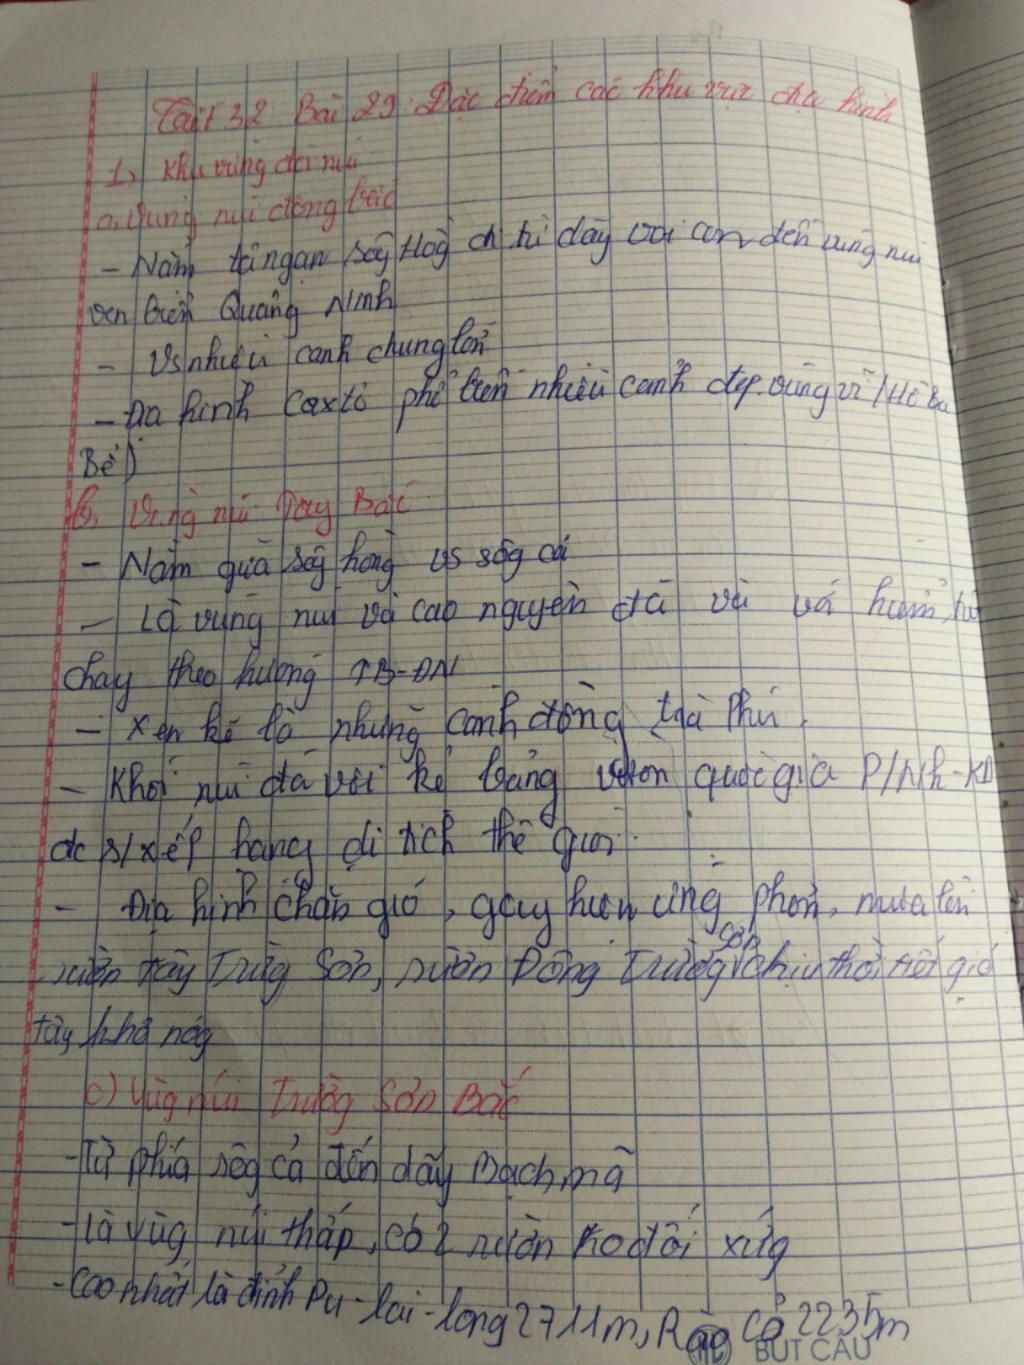 Tiết 32 Bài 29 Đặc điểm các khu vực địa hình
1, Khu vùng đồi núi
a, Vùng núi đông bắc
- Nằm tả ngạn sôg Hồg đi từ dãy voi con đến vùng núi
ven biển Quảng Ninh
- Vs nhiều cánh chung lớn
- Địa hình Caxtơ phổ biến nhiều cảnh đẹp. vùng vĩ (Hồ Ba
Bể)
b, Vùng núi Tây Bắc
- Nằm giữa sôg hồng vs sôg cả
- Là vùng núi và cao nguyên đá vôi hiểm trở
chạy theo hướng TB-ĐN
- Xen kẽ là những cánh đồng trà phú.
- Khối núi đá vôi kẻ bảng vườn quốc gia P/Nh-KB
đc s/xếp hạng di tích thế giới.
- Địa hình chắn gió, gây hiện ứng phơn, mưa lớn
sườn tây Trường Sơn, sườn Đông Trường Sơn chịu thời tiết gió
tây khô nóg
c) Vùg núi Trường Sơn Bắc
- Từ phía sôg cả đến dãy Bạch mã
- là vùg núi thấp, có 2 sườn ko đối xứg
- Cao nhất là đỉnh Pu-lai-long 2711m, Rào Cỏ 2235m
BÚT CẦU